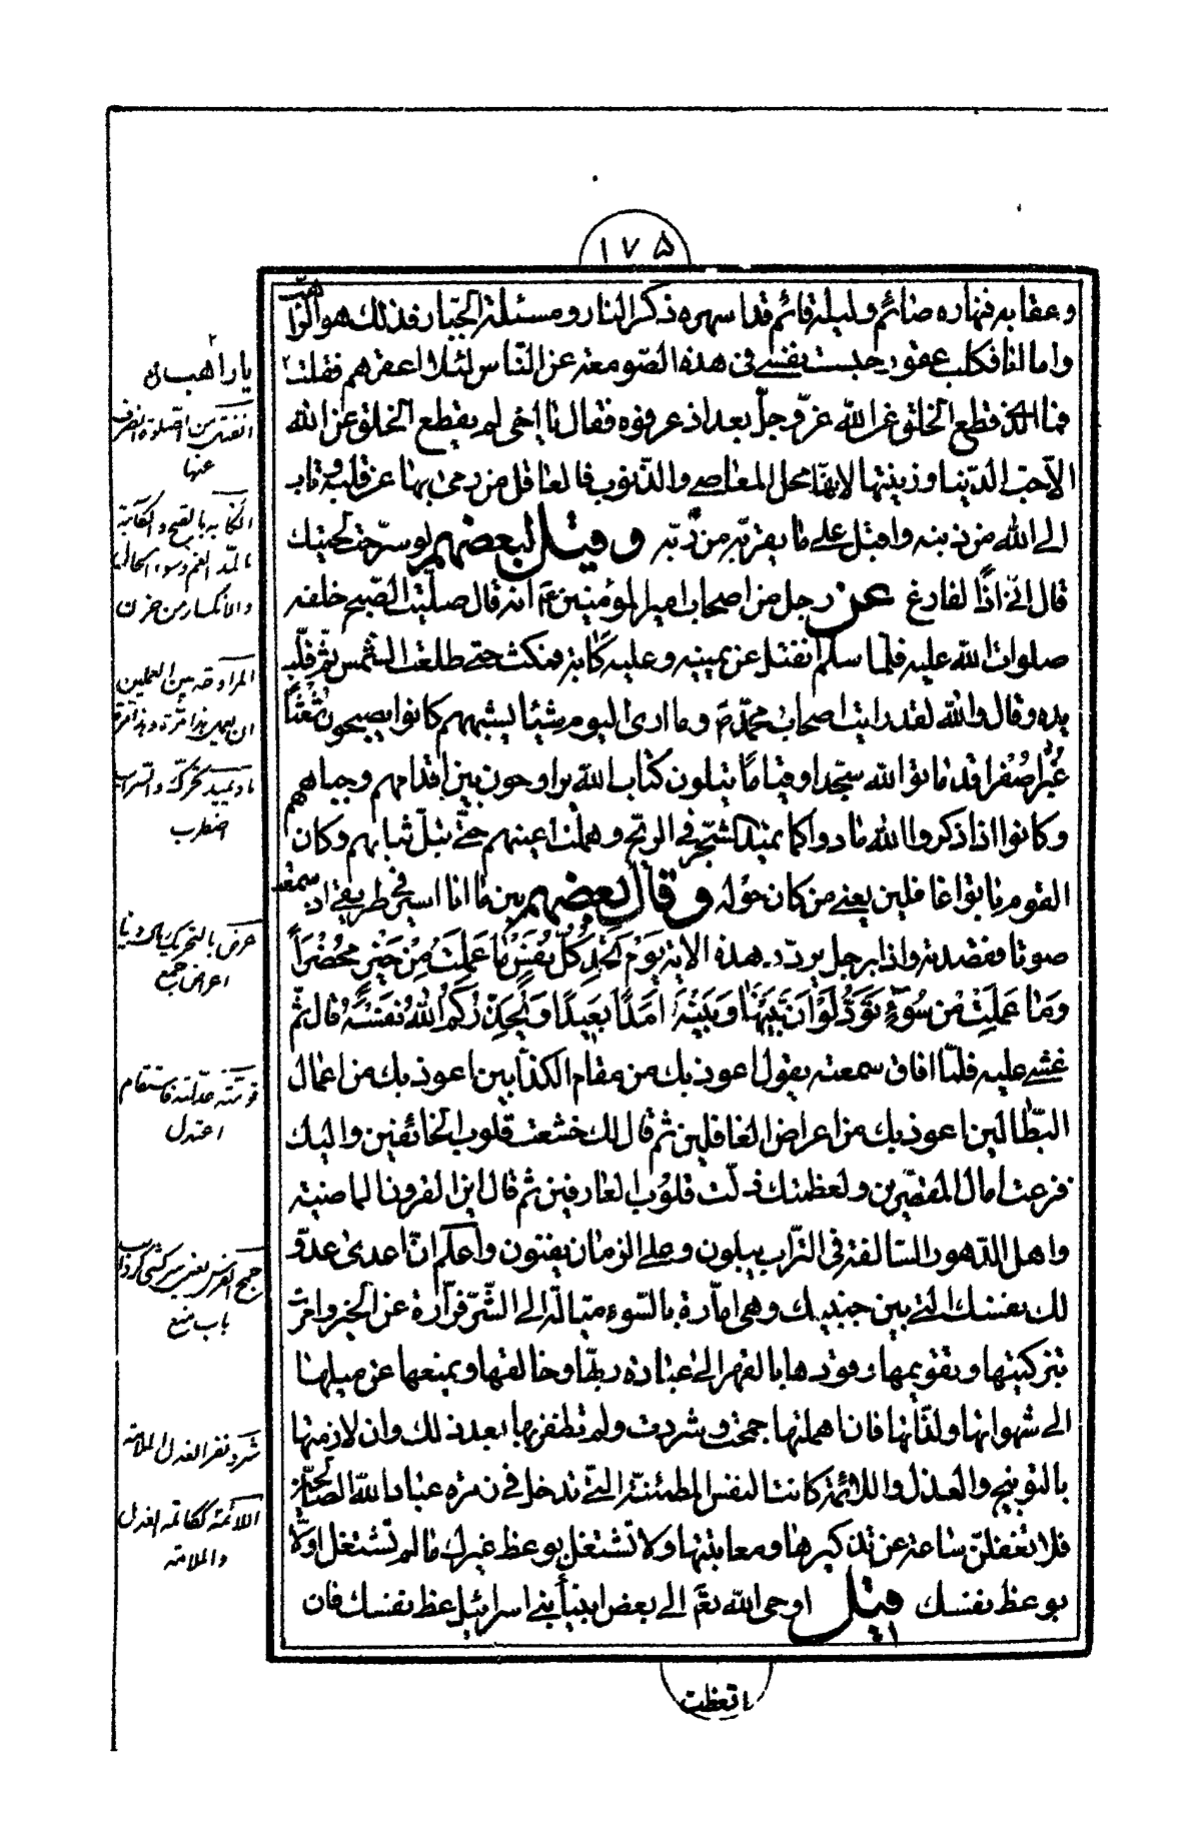 ١٧٥
وعقابه فنهاره صائم وليله قائم قد اسهره ذكر النار ومسئلة الجبّار فذلك هو الرّاهب
واما انا فكلب عقور حبست نفسى فى هذه الصّومعة عن النّاس لئلا اعقرهم فقلت
يا راهب
فما الّذى قطع الخلق عن الله عزّ وجلّ بعد اذ عرفوه فقال يا اخى لم يقطع الخلق عن الله
الّا حبّ الدّنيا وزينتها لانّها محلّ المعاصى والذّنوب فالعاقل من رمى بها عن قلبه وتاب
الى الله من ذنبه واقبل على ما يقرّبه من ربّه وقيل لبعضهم لو سرّحت لحيتك
قال انّى اذًا لفارغ عن رجل من اصحاب امير المؤمنين عم انه قال صلّيت الصّبح خلفه
صلوات الله عليه فلمّا سلّم انفتل عن يمينه وعليه كابة فمكث حتى طلعت الشّمس ثمّ قلّب
يده وقال والله لقد رايت اصحاب محمّد ص وما ارى اليوم شيئا يشبههم كانوا يصبحون شُعْثًا
غُبْرا صُفْرا قد باتوا لله سجّدا وقياما يتلون كتاب الله يراوحون بين اقدامهم وجباههم
وكانوا اذا ذكروا الله مادوا كما يميد الشّجر فى الريح وهملت اعينهم حتّى تبلّ ثيابهم وكان
القوم باتوا غافلين يعنى من كان حوله وقال بعضهم بين ما انا اسير فى طريقى اذ سمعت
صوتا فقصدته واذا برجل يردّد هذه الاية يَوْمَ تَجِدُ كُلُّ نَفْسٍ مَا عَمِلَتْ مِنْ خَيْرٍ مُحْضَراً
وَمَا عَمِلَتْ مِنْ سُوءٍ تَوَدُّ لَوْ اَنَّ بَيْنَهَا وَبَيْنَهُ اَمَدًا بَعِيدًا وَيُحَذِّرُكُمُ اللهُ نَفْسَهُ قال ثمّ
غشى عليه فلمّا افاق سمعته يقول اعوذ بك من مقام الكذّابين اعوذ بك من اعمال
البطّالين اعوذ بك من اعراض الغافلين ثمّ قال لك خشعت قلوب الخائفين واليك
فزعت امال المقصّرين ولعظمتك ذلّت قلوب العارفين ثم قال اين القرون الماضية
واهل الدّهور السّالفة فى التّراب يبلون وعلى الزمان يفنون واعلم انّ اعدى عدوّ
لك نفسك التى بين جنبيك وهى امّارة بالسّوء ميّالة الى الشّرّ فرّارة عن الخير وامرت
بتزكيتها وتقويمها وقودها بالقهر الى عبادة ربّها وخالقها ويمنعها عن ميلها
الى شهواتها ولذّاتها فان اهملتها جمحت وشردت ولم تظفر بها بعد ذلك وان لازمتها
بالتوبيخ والعذل واللائمة كانت النفس المطمئنة التى تدخل فى زمرة عباد الله الصّالحين
فلا تغفلنّ ساعة عن تذكيرها ومعاتبتها ولا تشتغل بوعظ غيرك ما لم تشتغل اوّلا
بوعظ نفسك قيل اوحى الله تعم الى بعض انبياء بنى اسرائيل عظ نفسك فان
اتعظت
انفتل من الصلوة انصرف
عنها
الكابه بالفتح والكآبة
بالمدّ الغم وسوء الحال
والانكسار من حزن
المراوحة بين العملين
ان يعمل هذا مرّة وهذا مرّة
ماد يميد تحرّك والسراب
اضطرب
عرض بالتحريك
اعراض جمع
قوّمته عدّلته فاستقام
اعتدل
جمح الفرس يعنى سركشى كرد
باب منع
شرد نفر العذل الملامة
اللائمة العذل
والملامة